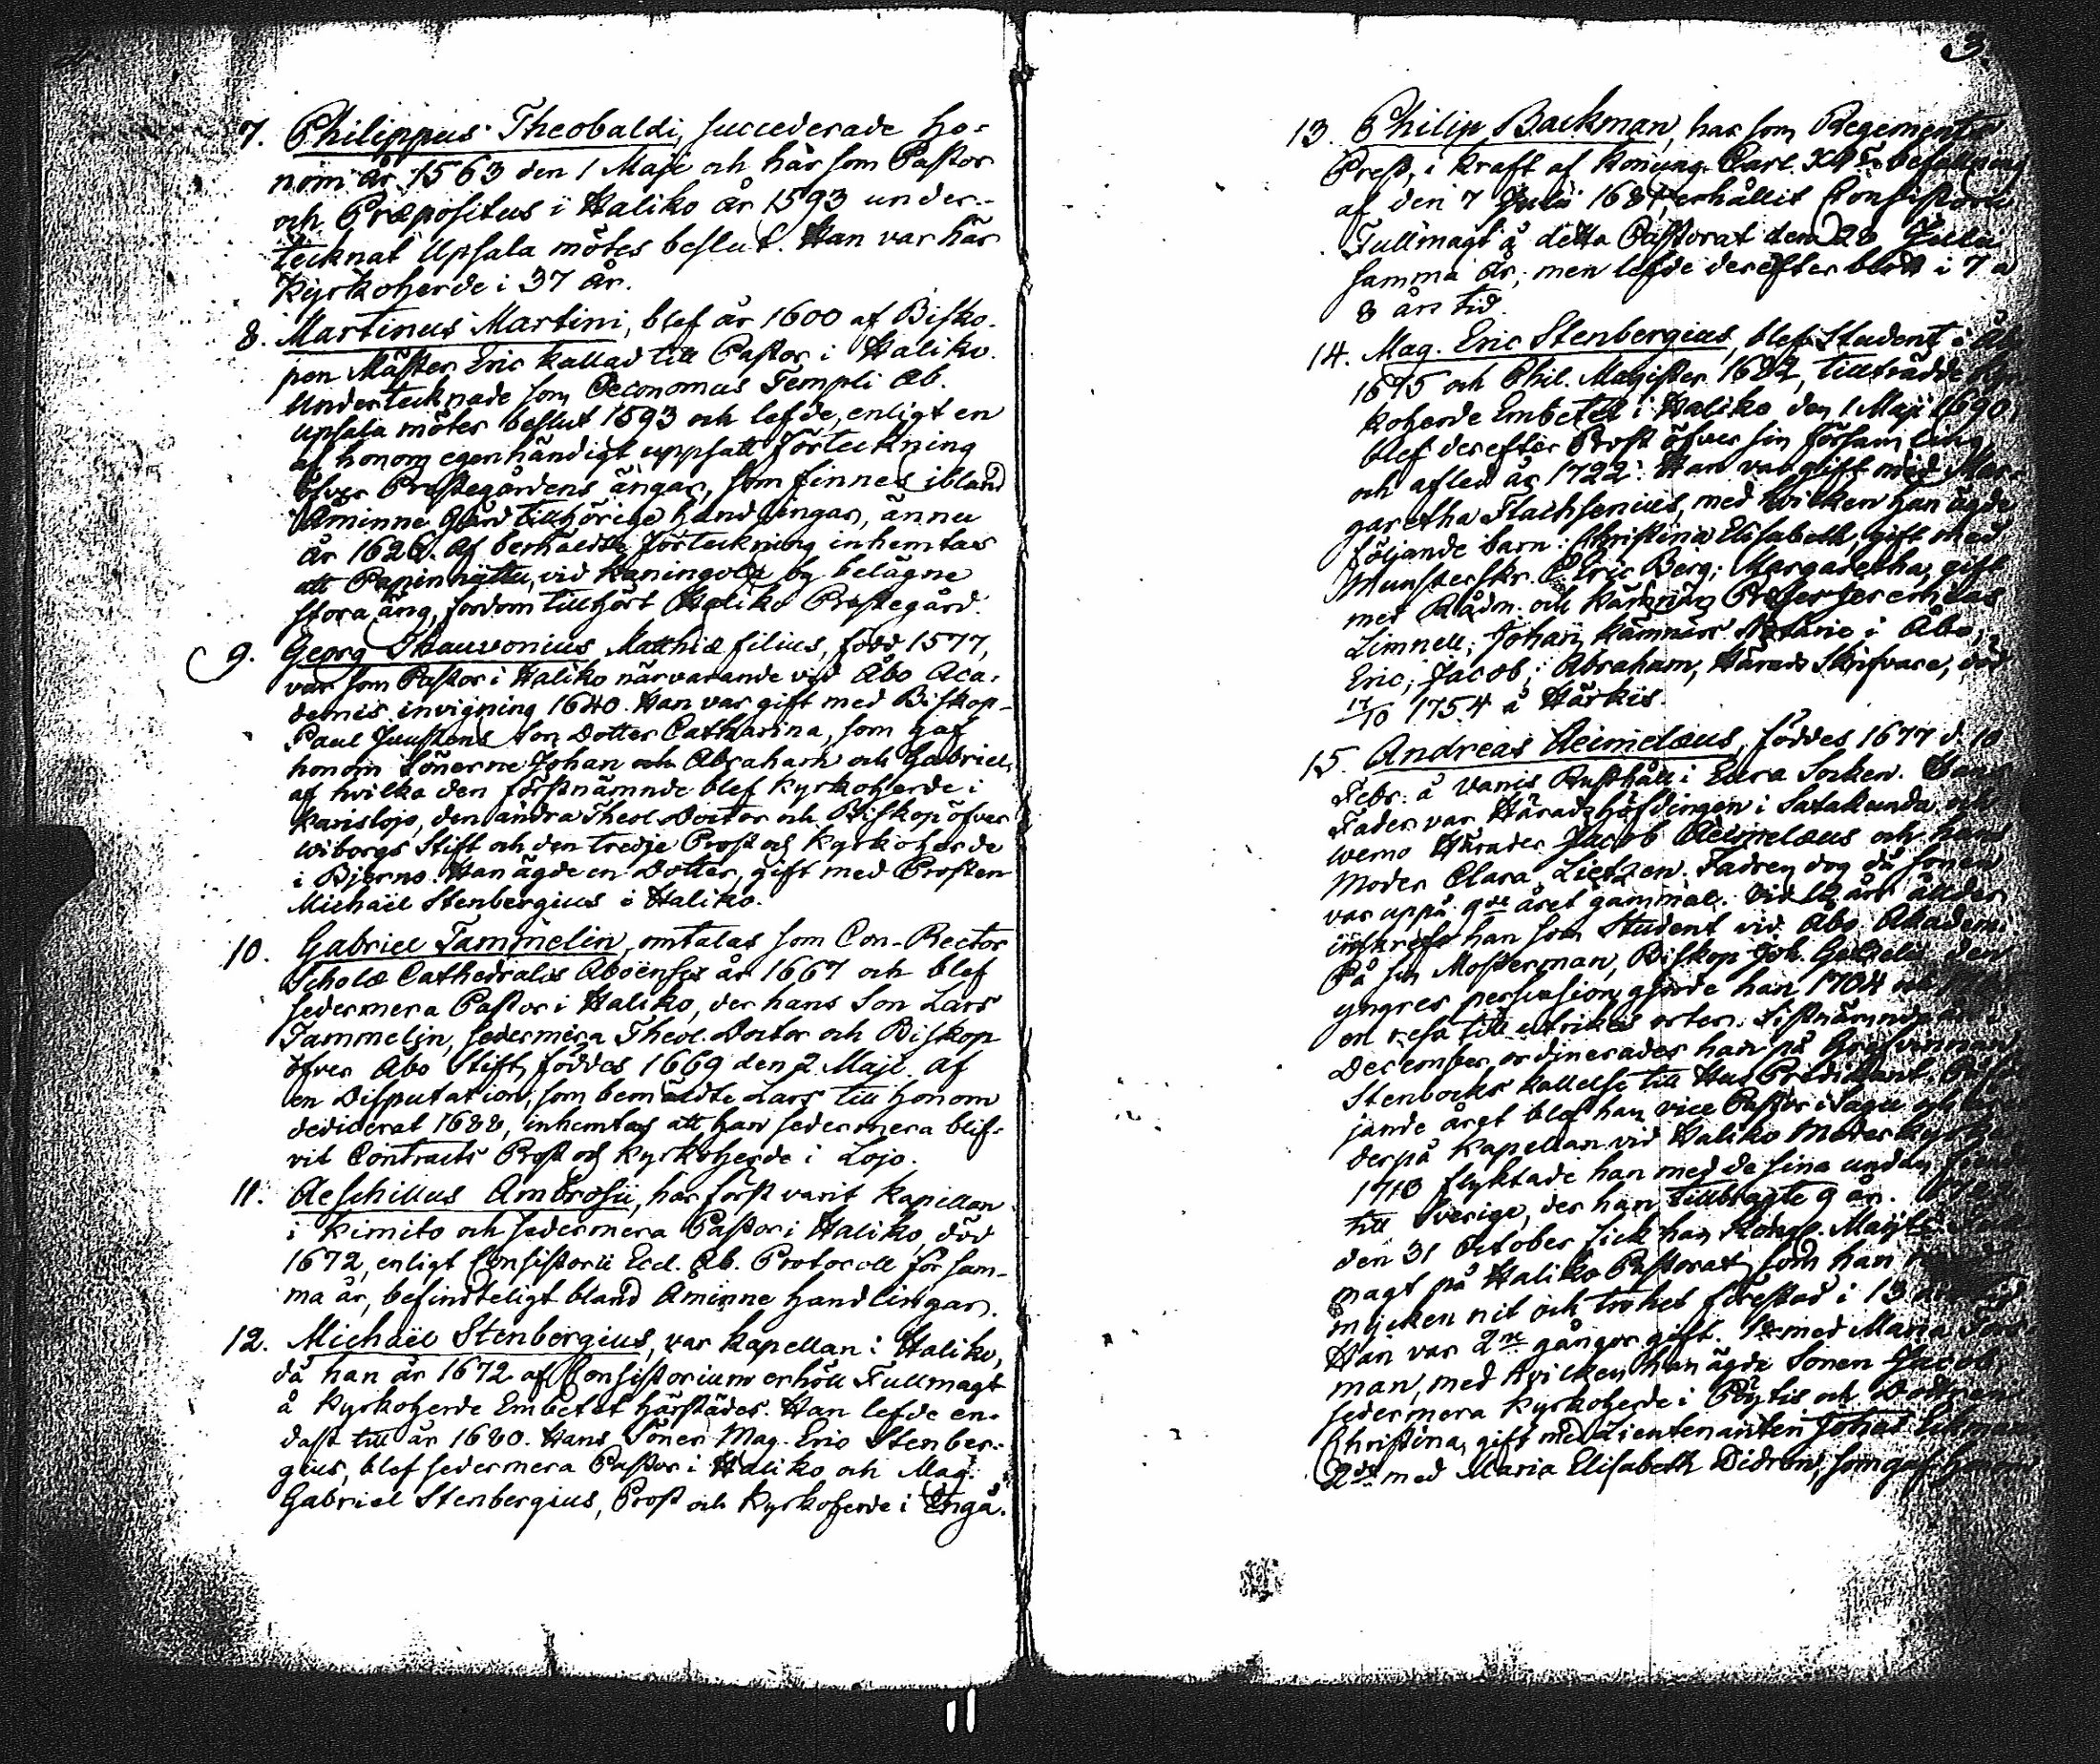 7. Philippus Theobaldi, succederade ho-
nom år 1563 den 1 Maji och här som Pastor
och Præpositus i Haliko år 1593 under-
tecknat Upsala mötes beslut. Han var här
Kyrkoherde i 37 år.
8. Martinus Martini, blef år 1600 af Bisko-
pen Mäster Eric kallad till Pastor i Haliko.
Undertecknade som Oeconomus Templi Ab.
Upsala mötes beslut 1593 och lefde, enligt en
af honom egenhändigt uppsatt förteckning
öfver Prestegårdens ängar, som finnes ibland
Åminne Gård tillhörige handlingar, ännu
år 1626. Af bemäldte förteckning inhemtas
att Papinnittu, vid Kaningola by belägne
stora äng, fordom tillhört Haliko Prestegård.
9. Georg Thauvonius Matthiæ filius, född 1577,
var som Pastor i Haliko närvarande vid Åbo Aca-
demis invigning 1640. Han var gift med Biskop
Paul Juustens son Dotter Catharina, som gaf
honom Sönerne Johan och Abraham och Gabriel,
af hvilka den förstnämnde blef Kyrkoherde i
Karislojo, den andra Theol. Doctor och Biskop öfver
Wiborgs Stift och den tredje Prost och Kyrkoherde
i Bjerno. Han ägde en Dotter, gift med Prosten
Michaël Stenbergius i Haliko.
10. Gabriel Tammelin, omtalas som Con-Rector
Scholæ Cathedralis Aboënsis år 1667 och blef
sedermera Pastor i Haliko, der hans Son Lars
Tammelin, sedermera Theol. Doctor och Biskop
öfver Åbo Stift, föddes 1669 den 2 Maji. Af
en Disputation, som bemäldte Lars till honom
dedicerat 1688, inhemtas att han sedermera blif-
vit Contracts Prost och Kyrkoherde i Lojo.
11. Aeschillus Ambrosii, har först varit Kapellan
i Kimito och sedermera Pastor i Haliko, död
1672, enligt Consistorii Eccl. Ab. Protocoll för sam-
ma år, befindteligt bland Aminne handlingar.
12. Michaël Stenbergius, var Kapellan i Haliko,
då han år 1672 af Consistorium erhöll Fullmagt
å Kyrkoherde Embetet härstädes. Han lefde en-
dast till år 1680. Hans Söner Mag. Eric Stenber-
gius, blef sedermera Pastor i Haliko och Mag.
Gabriel Stenbergius, Prost och Kyrkoherde i Engå.
3.
13. Philip Backman, har som Regements
Prest, i kraft af Konung Carl XI:s befallning
af den 7 Julii 1681, erhållit Consistorii
Fullmagt å detta Pastorat den 28 Julii
samma år; men lefde derefter blott i 7 a
8 års tid.
14. Mag. Eric Stenbergius, blef Student i Åbo
1675 och Phil. Magister 1682, tillträdde Kyr-
koherde Embetet i Haliko den 1 Maji 1690,
blef derefter Prost öfver sin församling,
och afled år 1722. Han var gift med Mar-
garetha Flachsenius, med hvilken han ägde
följande barn: Christina Elisabeth, gift med
Munsterskr. Eric Berg; Margaretha, gift
met Rådm. och Kämnärs Præses Jeremias
Limnell; Johan, Kämnärs Notarie i Åbo;
Eric; Jacob; Abraham, Härads Skrifvare, död
17/10 1754 å Härkis.
15. Andreas Aeimelæus, föddes 1677 d. 10
Febr. å Vanis Rusthåll i Eura Socken. Hans
Fader var Häradshöfdingen i Satakunda och
Wemo Härader Jacob Aeimelæus och hans
Moder Clara Lietzen. Fadren dog då sonen
var uppå 9de året gammal. Vid 12 års ållder
inskrefs han som Student vid Åbo Akademi.
På sin Mosterman, Biskop Joh. Gezelii den
yngres persuasion gjorde han 1704
en resa till utrikes orter. Sistnämnde år i
December ordinerades han på Grefvinnan
Stenbocks kallelse till Hus Predikant.
jande året blef han vice Pastor i Sagu och
derpå Kapellan vid Haliko Moderkyrka.
1713 flyktade han med de sina undan
till Sverige, der han tillbragte 9 år.
den 31 October fick han Kongl. Maj:ts Full-
magt på Haliko Pastorat, som han med
mycken nit och trohet förestod i 13
Han var 2ne gånger gift. 1o med Maria
man, med hvilken han ägde Sonen Jacob
sedermera Kyrkoherde i Pöytis och Dottren
Christina, gift med Lieutenanten Johan
2do med Maria Elisabeth Didron, som gaf honom